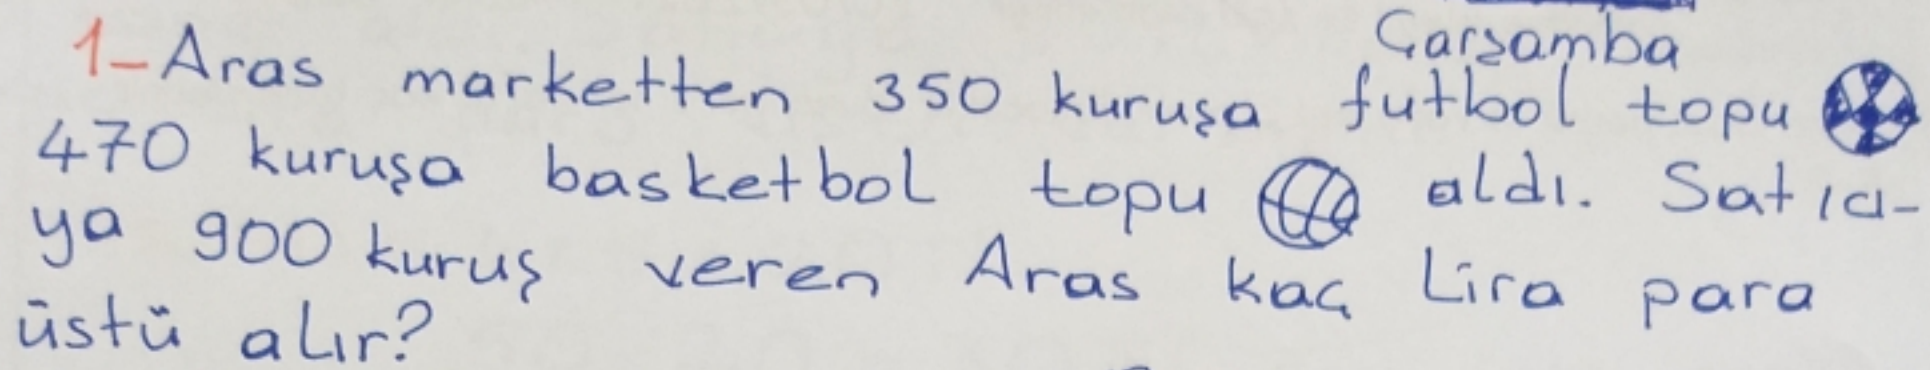 Çarşamba
1-Aras marketten 350 kuruşa futbol topu
470 kuruşa basketbol topu aldı. Satıcı-
ya 900 kuruş veren Aras kaç Lira para
üstü alır?